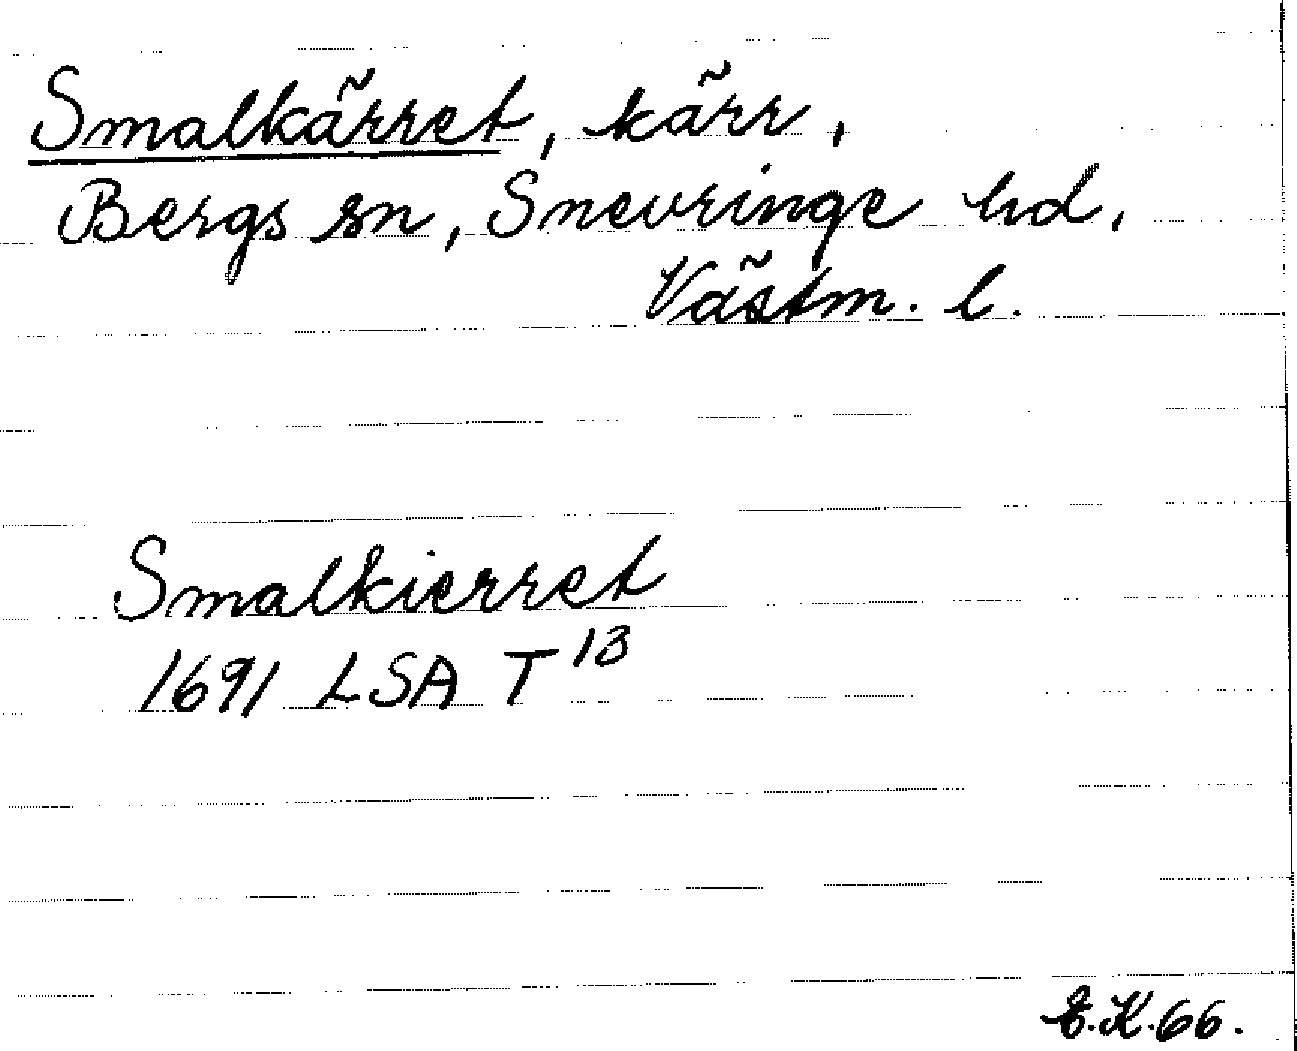 Smalkärret, kärr,
Bergs sn, Snevringe hd,
Västm. l.
Smalkierret
1691 LSA T 13
E.K. 66.